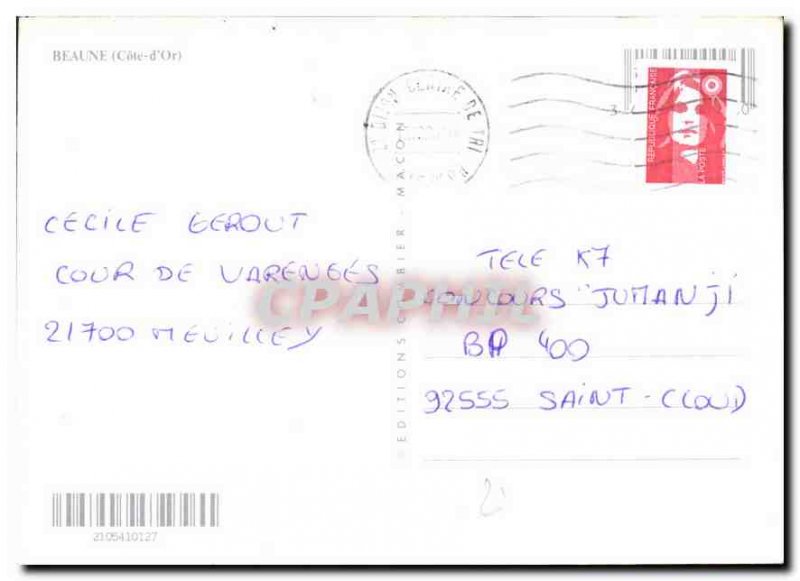 BEAUNE (Côte-d'Or)
21 DIJON CENTRE DE TRI
RÉPUBLIQUE FRANÇAISE
LA POSTE
CECILE GEROUT
COUR DE VARENGES
21700 MEUILLEY
EDITIONS COMBIER - MACON
TELE K7
CONCOURS "JUMANji
BP 400
92555 SAiNT-CLOUD
CPAPHIL
2105410127
2